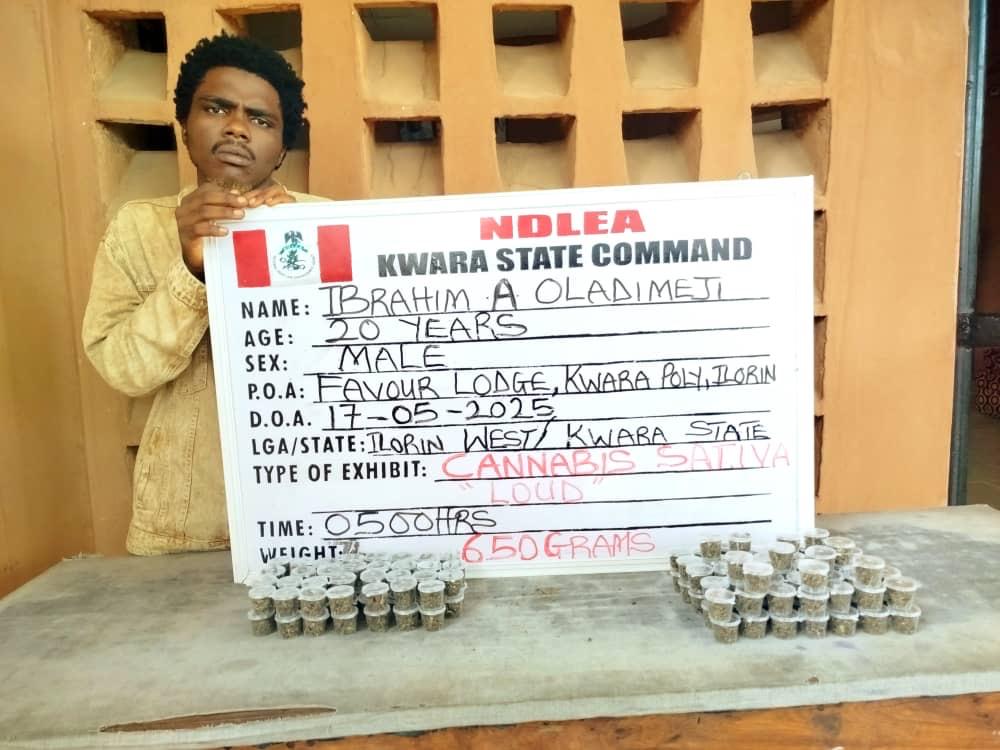 NDLEA
KWARA STATE COMMAND
NAME: IBRAHIM A OLADIMEJI
AGE: 20 YEARS
SEX: MALE
P.O.A: FAVOUR LODGE, KWARA POLY, ILORIN
D.O.A. 17-05-2025
LGA/STATE: ILORIN WEST/ KWARA STATE
TYPE OF EXHIBIT: CANNABIS SATIVA
"LOUD"
TIME: 0500HRS
WEIGHT: 650GRAMS